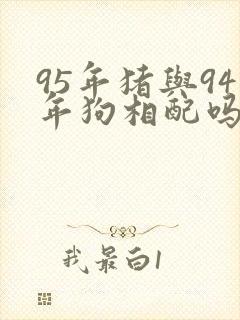 95年猪與94
年狗相配吗
我最白1